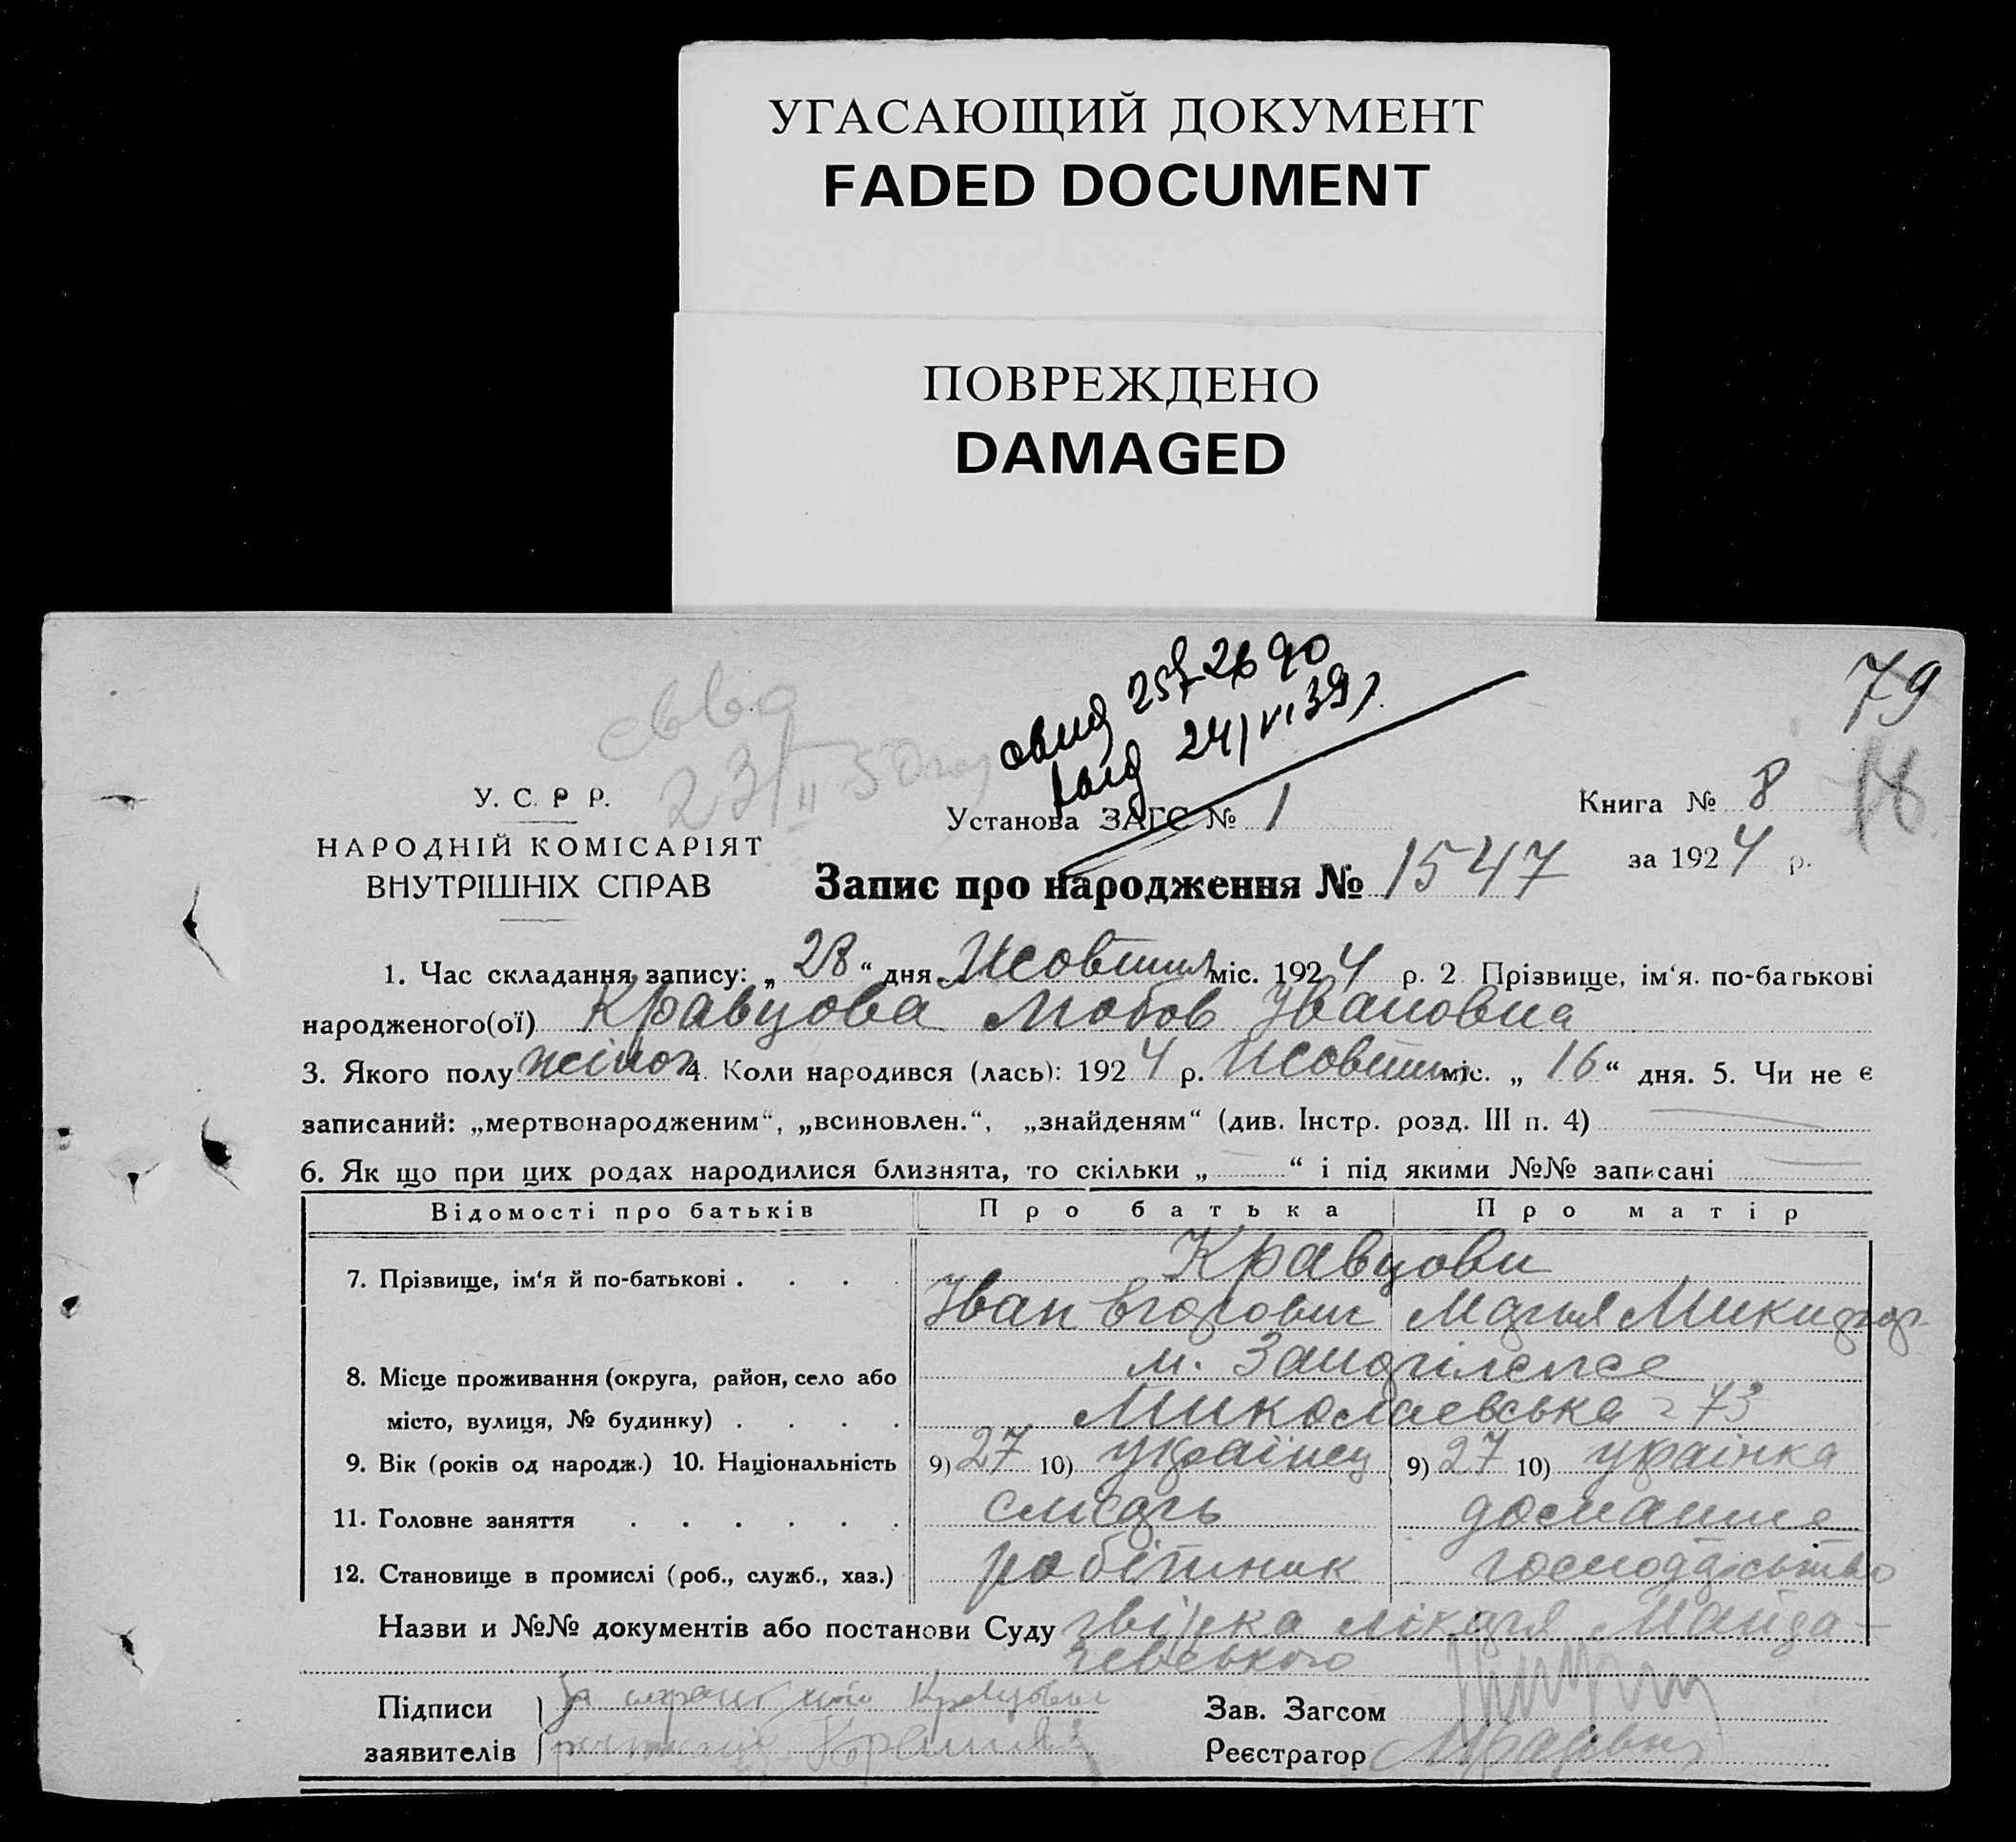 УГАСАЮЩИЙ ДОКУМЕНТ
FADED DOCUMENT
ПОВРЕЖДЕНО
DAMAGED
79
свид 2690
24/VI 39 р.
23/II 50
У. С. Р Р.
НАРОДНІЙ КОМІСАРІЯТ
ВНУТРІШНІХ СПРАВ
Установа ЗАГС № 1
Книга № 8
за 1924 р.
Запис про народження № 1547
1. Час складання запису: „28“ дня Жовтня міс. 1924 р. 2 Прізвище, ім‘я. по-батькові
народженого(ої) Кравцова Любов Івановна
3. Якого полу жіноч 4. Коли народився (лась): 1924 р. Жовтня міс. „16“ дня. 5. Чи не є
записаний: „мертвонародженим“, „всиновлен.“, „знайденям“ (див. Інстр. розд. III п. 4)
6. Як що при цих родах народилися близнята, то скільки „ “ і під якими №№ записані
Відомості про батьків Про батька Про матір
7. Прізвище, ім‘я й по-батькові . . . . Кравцови
Іван Мария Микифор
8. Місце проживання (округа, район, село або м.
місто, вулиця, № будинку) . . . . Миколаевська 73
9. Вік (років од народж.) 10. Національність 9) 27 10) українец 9) 27 10) украінка
11. Головне заняття . . . . . . слюсарь домашне
12. Становище в промислі (роб., служб., хаз.) робітник господарство
Назви и №№ документів або постанови Суду звістка лікаря Майда-
чевського
Підписи
Зав. Загсом
заявителів
Реєстратор